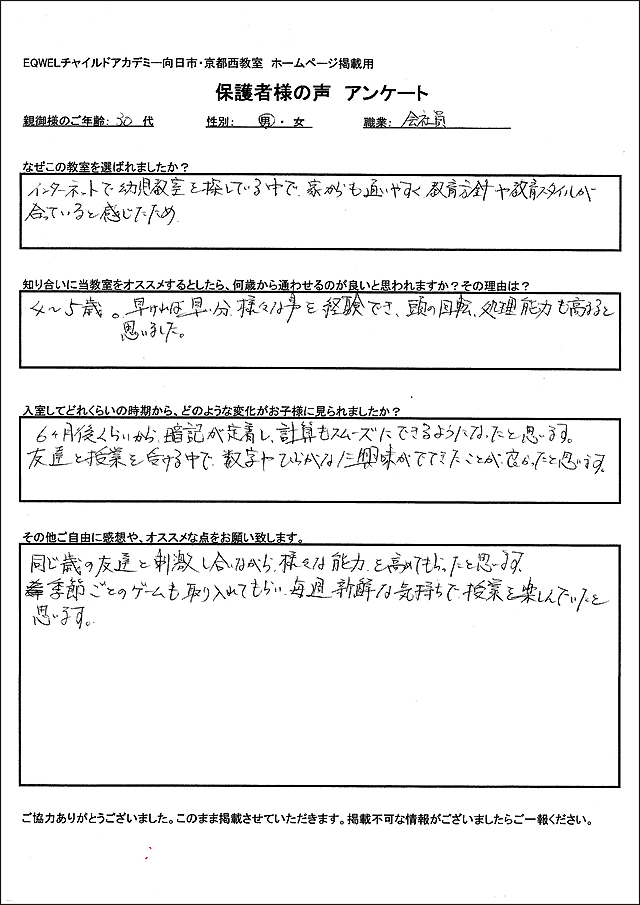 EQWELチャイルドアカデミー向日市・京都西教室 ホームページ掲載用
保護者様の声 アンケート
親御様のご年齢: 30 代 性別: 男・女 職業: 会社員
なぜこの教室を選ばれましたか?
インターネットで幼児教室を探している中で、家からも通いやすく教育方針や教育スタイルが
合っていると感じたため
知り合いに当教室をオススメするとしたら、何歳から通わせるのが良いと思われますか?その理由は?
4〜5歳。早ければ早い分、様々な事を経験でき、頭の回転、処理能力も高まると
思いました。
入室してどれくらいの時期から、どのような変化がお子様に見られましたか?
6ヶ月後くらいから、暗記が定着し、計算もスムーズにできるようになったと思います。
友達と授業を受ける中で、数字やひらがなに興味がでてきたことが良かったと思います。
その他ご自由に感想や、オススメな点をお願い致します。
同じ歳の友達と刺激し合いながら、様々な能力を高めてもらったと思います。
季節ごとのゲームも取り入れてもらい、毎週新鮮な気持ちで、授業を楽しんでいたと
思います。
ご協力ありがとうございました。このまま掲載させていただきます。掲載不可な情報がございましたらご一報ください。